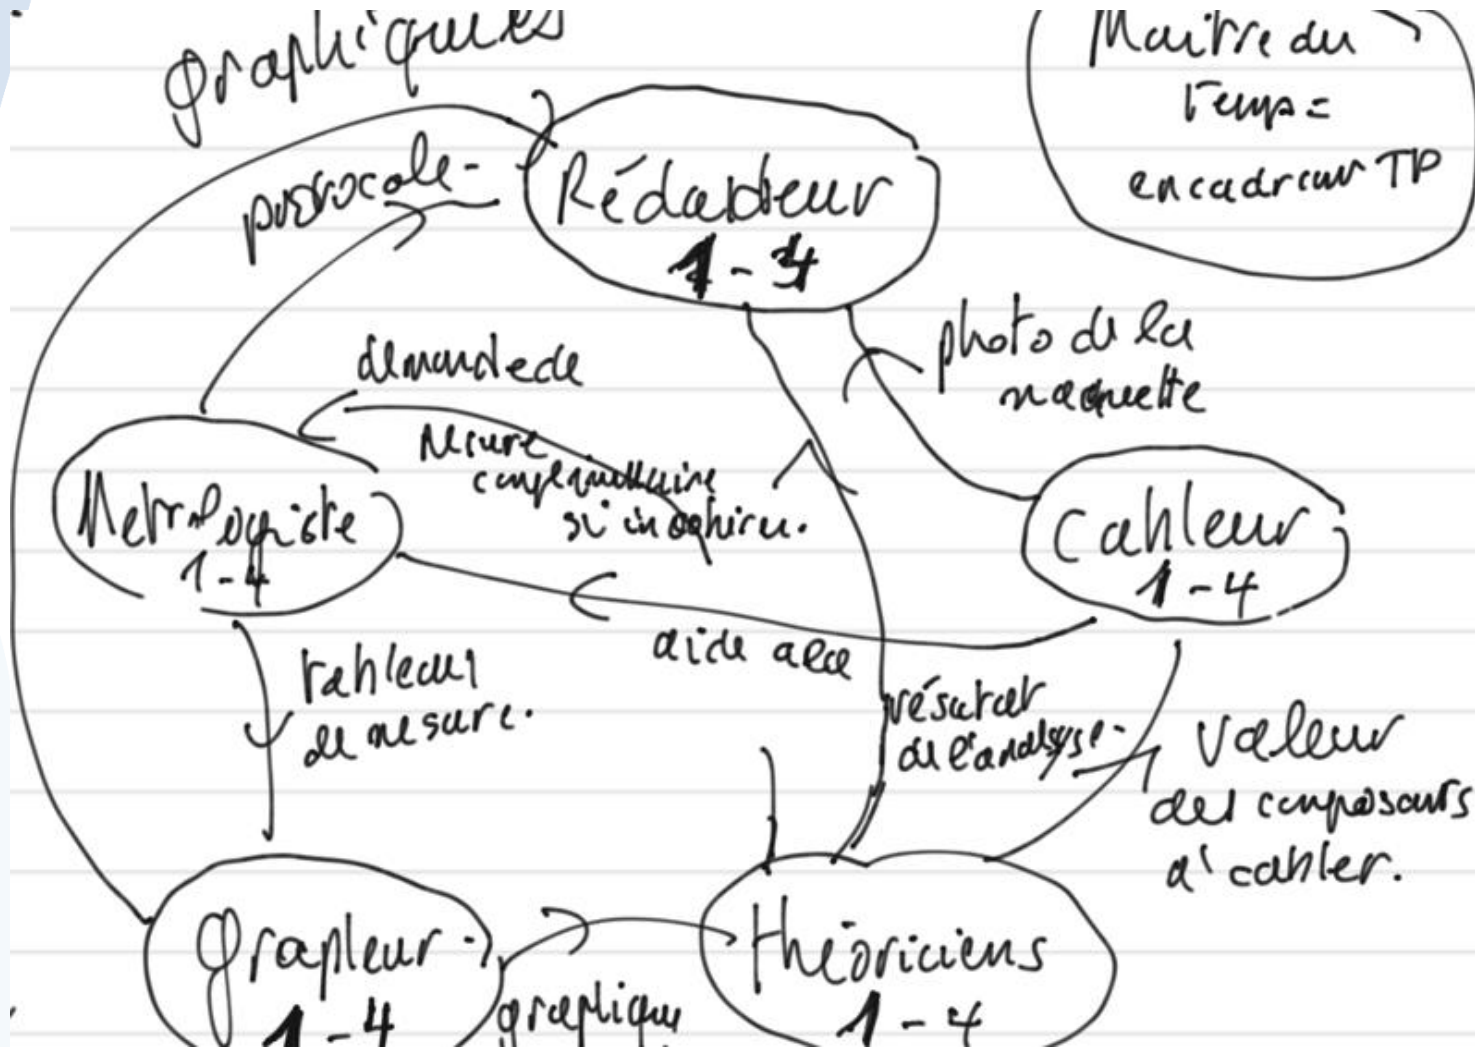 graphiques
Maitre du
Temps =
encadreur TP
protocole -
Rédacteur
1-4
photo de la
maquette
demande de
mesure
complémentaire
si incohéren.
Metrologiste
1-4
Cableur
1-4
aide a la
tableaux
de mesure.
résultat
de l'analyse.
Valeur
des composants
a' cabler.
grapheur
1-4
graphique
théoriciens
1-4